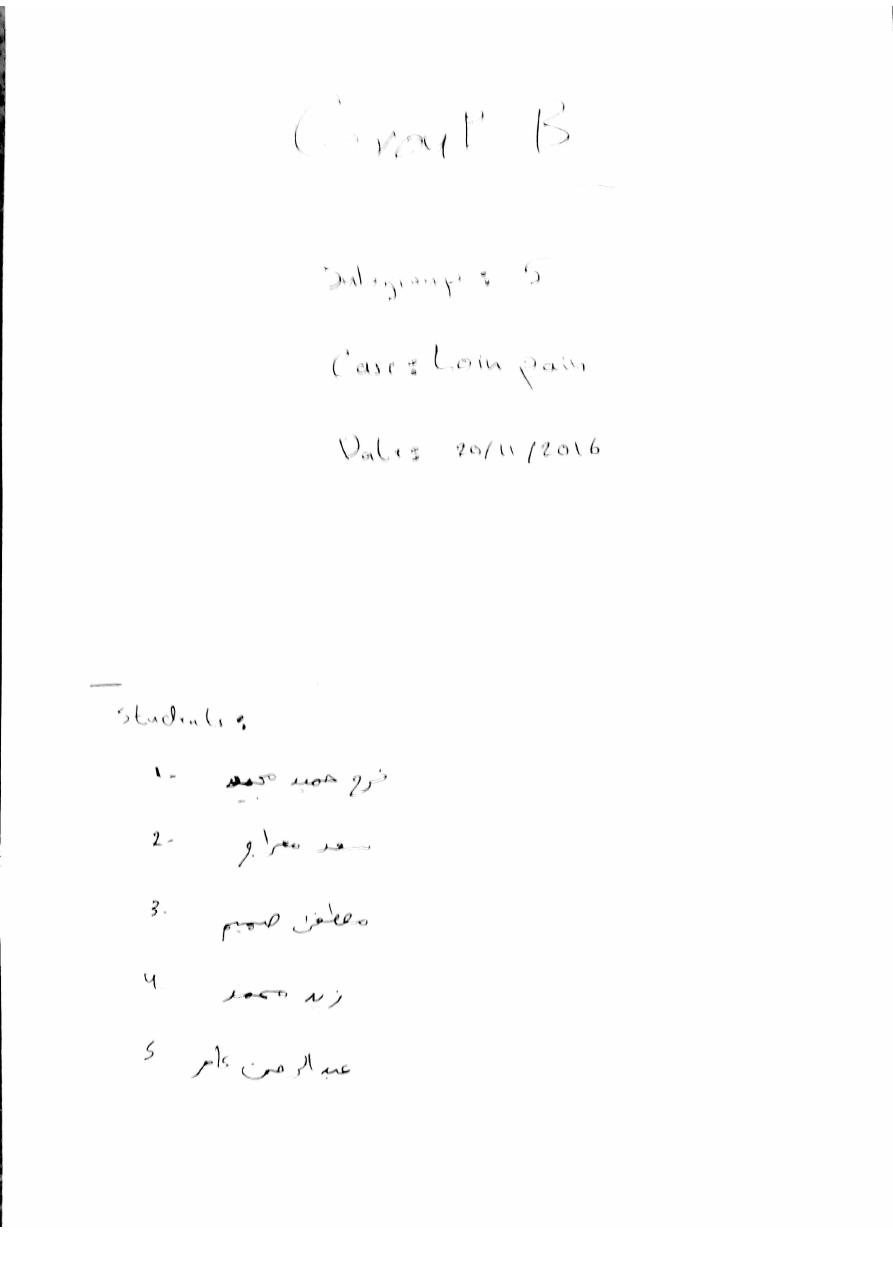 Group B
Subgroup : 5
Case : Loin pain
Date : 20/11/2016
Students :
1- فرح حميد مجيد
2- سعد
3. مصطفى صميم
4 زيد محمد
5 عبد الرحمن عامر